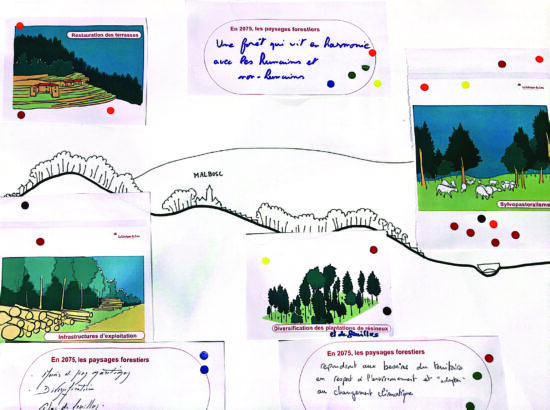 Restauration des terrasses
En 2075, les paysages forestiers
Une forêt qui vit en harmonie
avec les humains et
non-humains
MALBOSC
Sylvopastoralisme
Infrastructures d'exploitation
Diversification des plantations de résineux
et de feuillus
En 2075, les paysages forestiers
Diversification
de feuillus
En 2075, les paysages forestiers
répondent aux besoins du territoire
en respect à l'environnement et "adapter"
au changement climatique